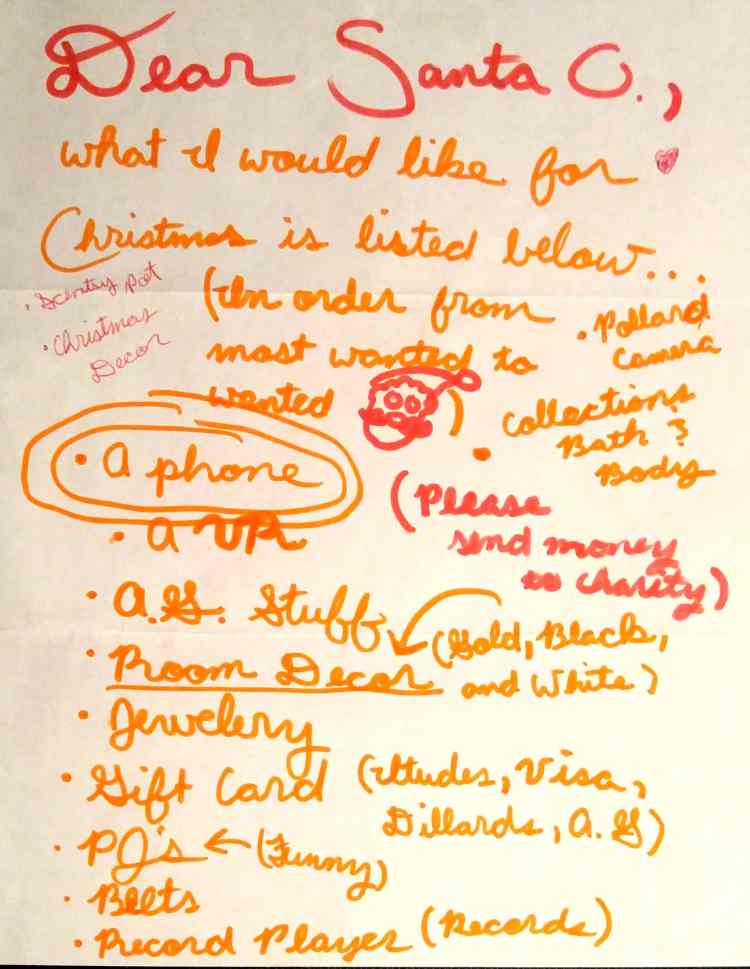 Dear Santa C.,
what I would like for
Christmas is listed below...
• Scentsy Pot
• Christmas
Decor
(In order from
most wanted to
wanted )
• Pollard
Camera
• Collections
Bath &
Body
• A phone
(Please
send money
to charity)
• A VR
• A.G. Stuff
• Room Decor (Gold, Black,
and White)
• Jewelery
• Gift Card (Ittudes, Visa,
Dillards, A.G)
• PJ's ← (Funny)
• Belts
• Record Player (Records)